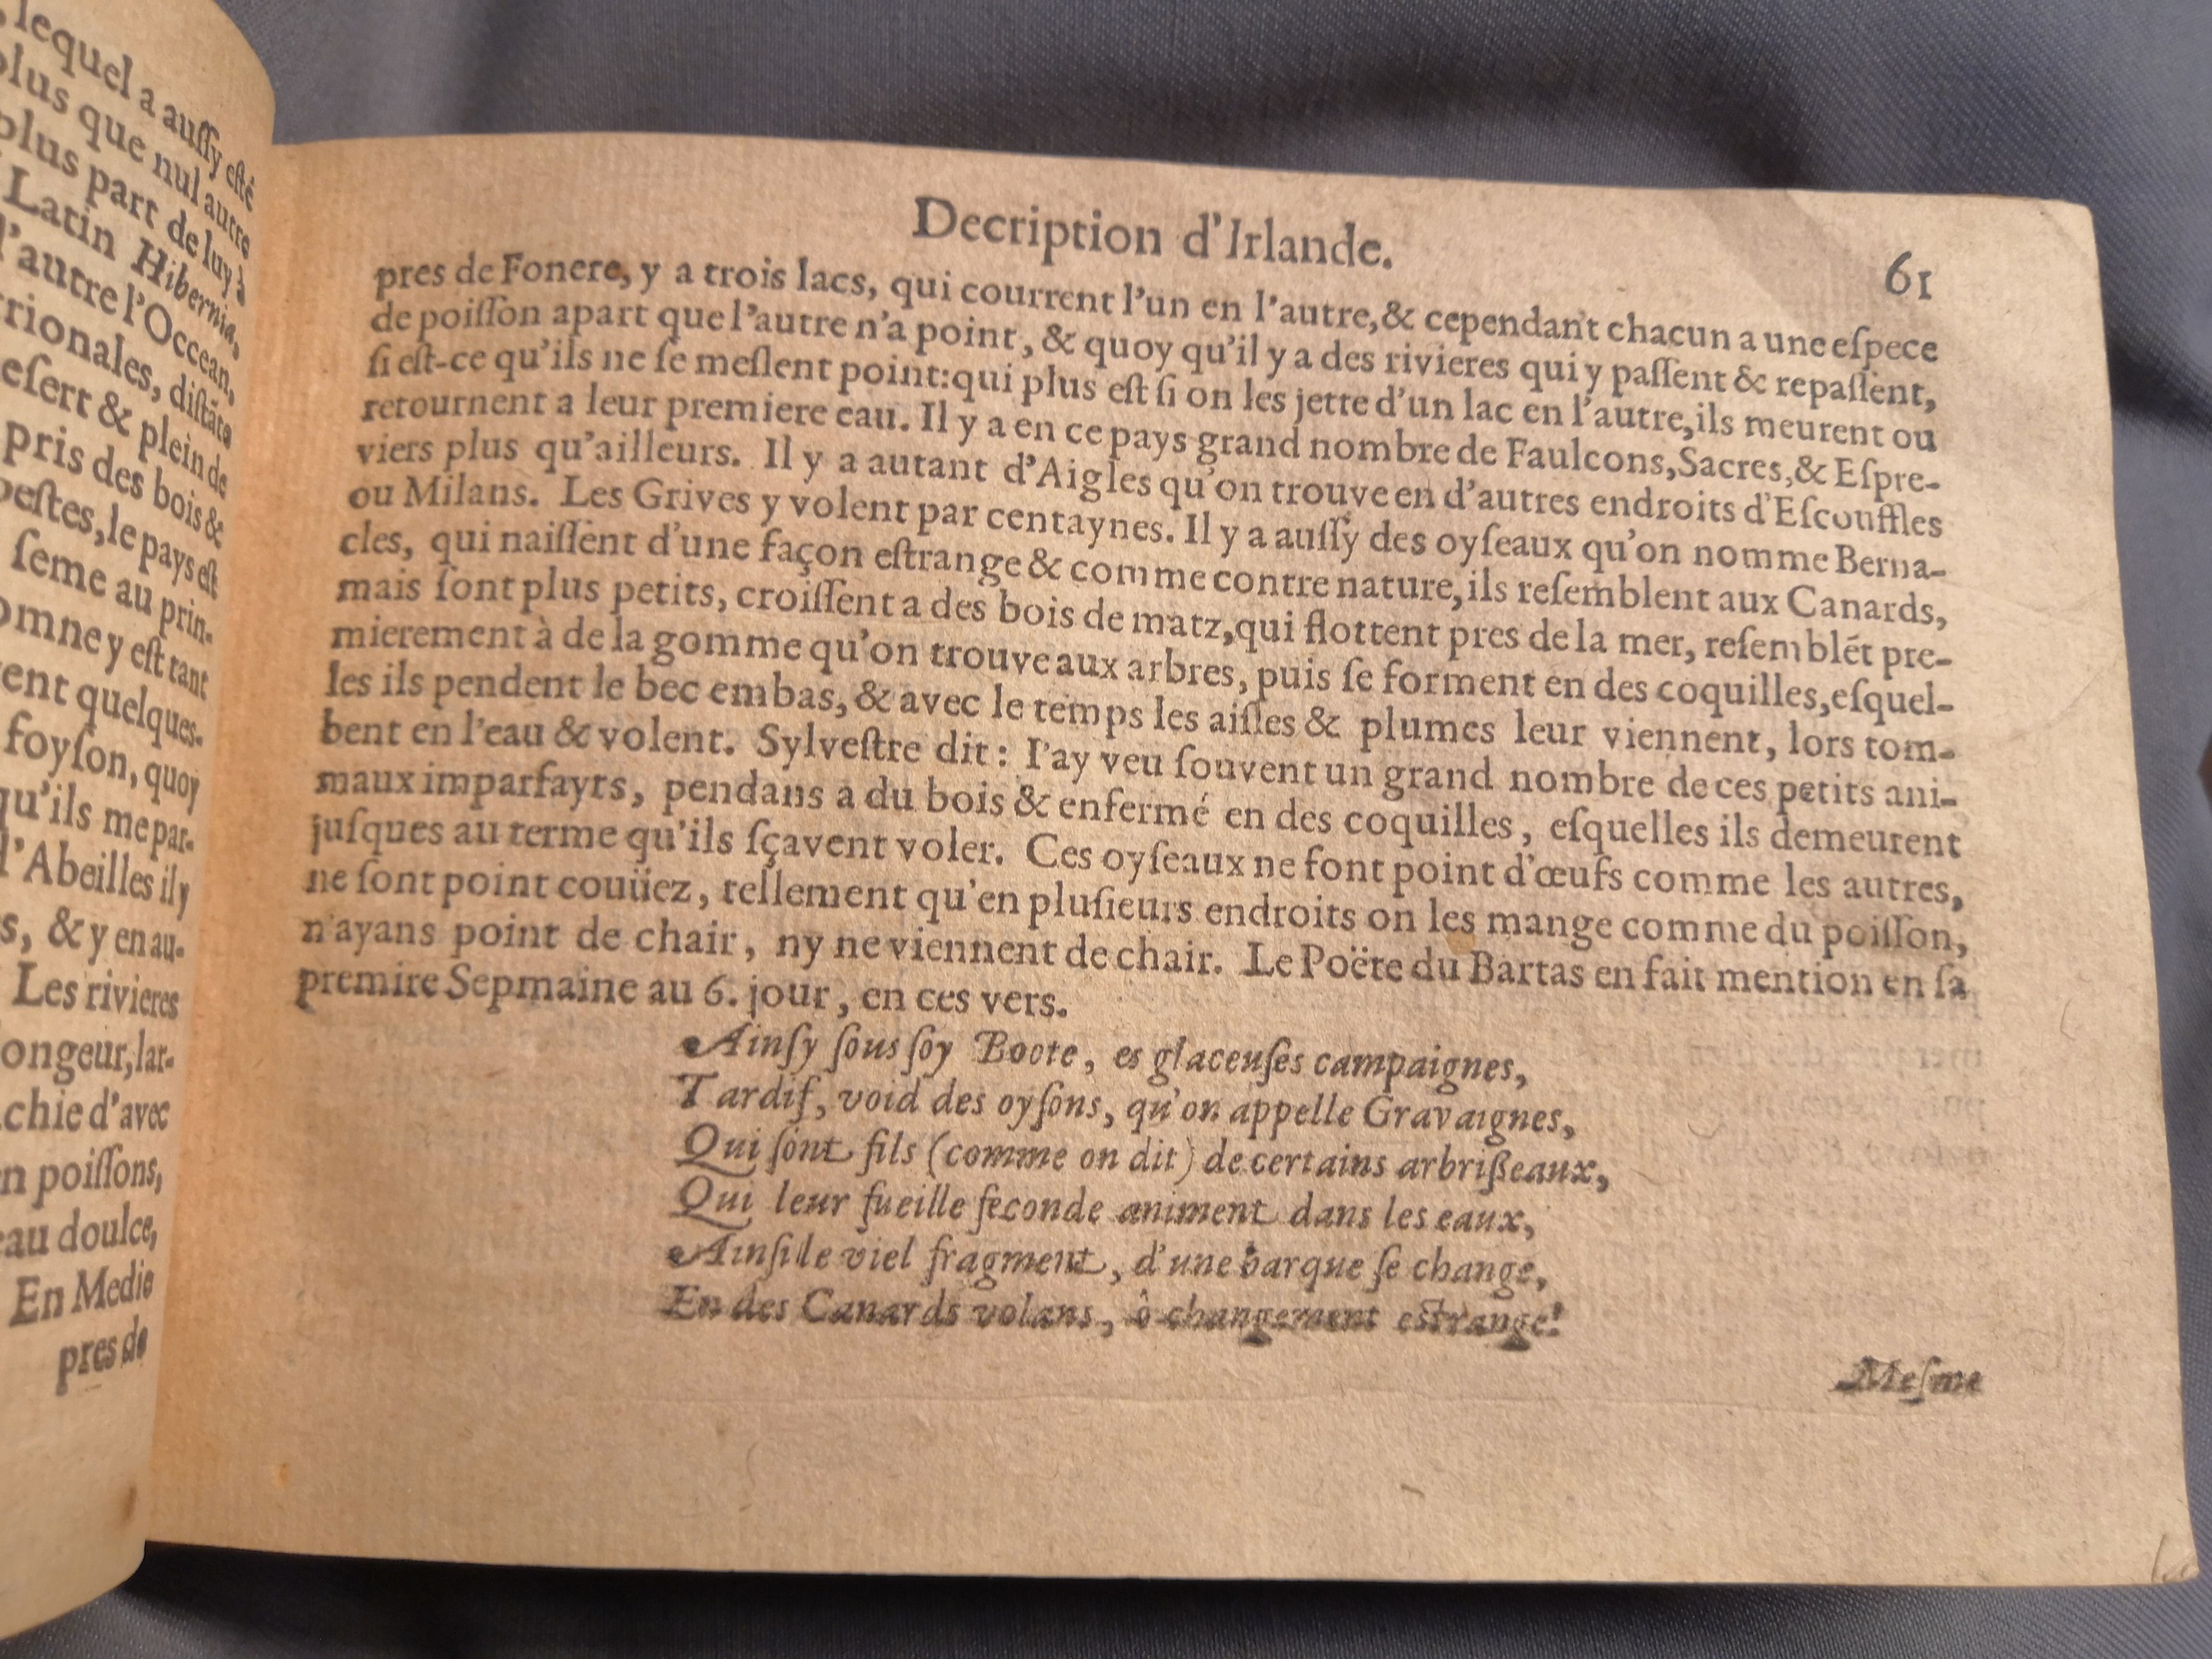 lequel a auſſy eſté
plus que nul autre
plus part de luy à
Latin Hibernia,
l'autre l'Occean,
trionales, diſtāts
eſert & plein de
pris des bois &
beſtes, le pays eſt
ſeme au prin-
omne y eſt tant
ent quelques-
foyſon, quoy
qu'ils me par-
d'Abeilles il y
s, & y en au-
Les rivieres
longeur, lar-
chie d'avec
n poiſſons,
eau doulce,
En Medie
pres de
Decription d'Irlande. 61
pres de Fonere, y a trois lacs, qui courrent l'un en l'autre, & cependant chacun a une eſpece
de poiſſon apart que l'autre n'a point, & quoy qu'il y a des rivieres qui y paſſent & repaſſent,
ſi eſt-ce qu'ils ne ſe meſlent point: qui plus eſt ſi on les jette d'un lac en l'autre, ils meurent ou
retournent a leur premiere eau. Il y a en ce pays grand nombre de Faulcons, Sacres, & Eſpre-
viers plus qu'ailleurs. Il y a autant d'Aigles qu'on trouve en d'autres endroits d'Eſcouffles
ou Milans. Les Grives y volent par centaynes. Il y a auſſy des oyſeaux qu'on nomme Berna-
cles, qui naiſſent d'une façon eſtrange & comme contre nature, ils reſemblent aux Canards,
mais ſont plus petits, croiſſent a des bois de matz, qui flottent pres de la mer, reſemblét pre-
mierement à de la gomme qu'on trouve aux arbres, puis ſe forment en des coquilles, eſquel-
les ils pendent le bec embas, & avec le temps les aiſles & plumes leur viennent, lors tom-
bent en l'eau & volent. Sylveſtre dit: I'ay veu ſouvent un grand nombre de ces petits ani-
maux imparfayts, pendans a du bois & enfermé en des coquilles, eſquelles ils demeurent
juſques au terme qu'ils ſçavent voler. Ces oyſeaux ne font point d'œufs comme les autres,
ne ſont point couüez, tellement qu'en pluſieurs endroits on les mange comme du poiſſon,
n'ayans point de chair, ny ne viennent de chair. Le Poëte du Bartas en fait mention en ſa
premire Sepmaine au 6. jour, en ces vers.
Ainſy ſous ſoy Boote, es glaceuſes campaignes,
Tardif, void des oyſons, qu'on appelle Gravaignes,
Qui ſont fils (comme on dit) de certains arbriſſeaux,
Qui leur fueille feconde animent dans les eaux,
Ainſi le viel fragment, d'une barque ſe change,
En des Canards volans, ô changement estrange!
Meſme